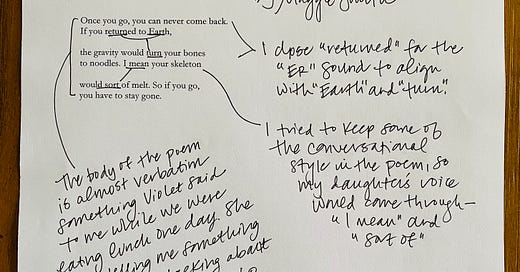 by Maggie Smith
Once you go, you can never come back.
If you returned to Earth,
the gravity would turn your bones
to noodles. I mean your skeleton
would sort of melt. So if you go,
you have to stay gone.
I chose "returned" for the
"ER" sound to align
with "Earth" and "turn."
I tried to keep some of
the conversational
style in the poem, so
my daughter's voice
would come through—
"I mean" and
"sort of"
The body of the poem
is almost verbatim
something Violet said
to me while we were
eating lunch one day. She
telling me something
about